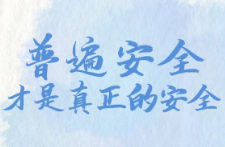 普遍安全
才是真正的安全